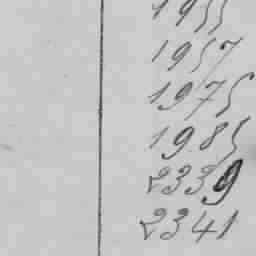 1955
1957
1975
1985
2339
2341